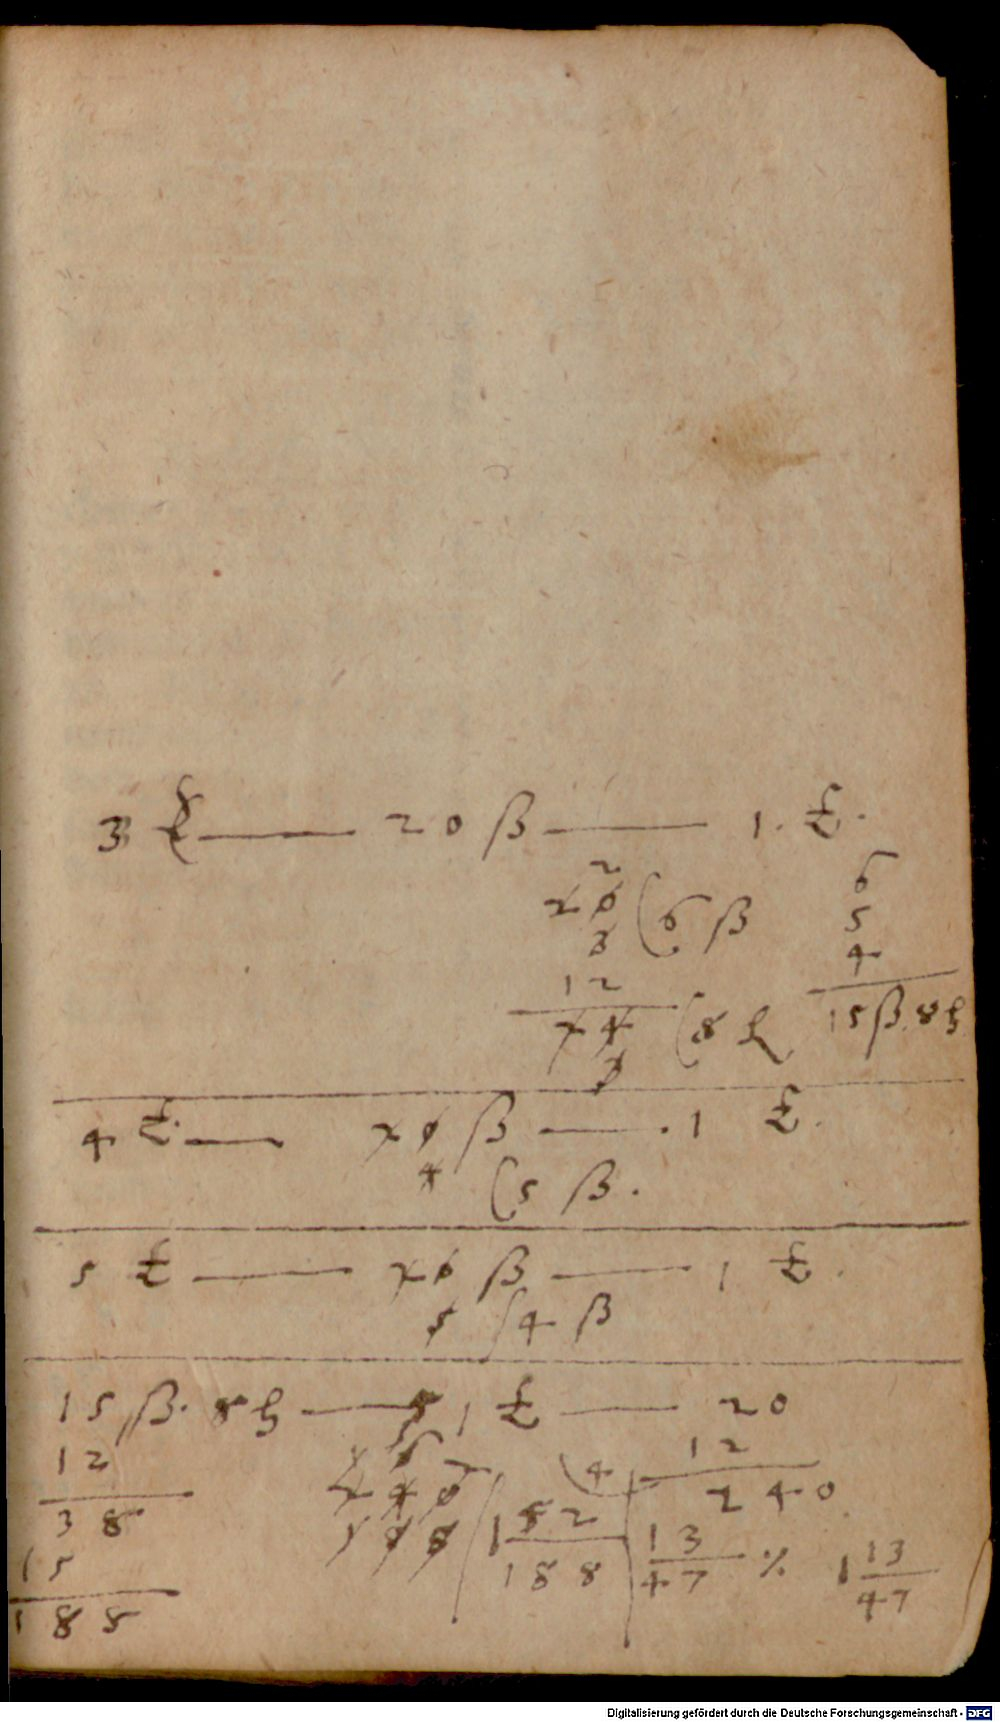 3 ℔ — 20 ß — 1. ℔.
2 6
20 (6 ß 5
3 4
12 15 ß. 8 ₰
24 (8 ₰
3
4 ℔. — 20 ß — . 1 ℔.
4 (5 ß.
5 ℔ — 20 ß — 1 ℔.
5 (4 ß
15 ß. 8 ₰ — 1 ℔ — 20
12 (4 12
38 240 240
15 188 1 52/188 13/47 % 1 13/47
188
Digitalisierung gefördert durch die Deutsche Forschungsgemeinschaft - DFG